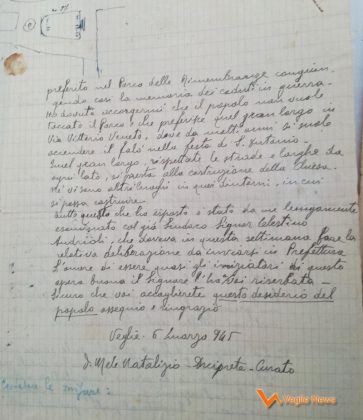 preferito nel Parco delle Rimembranze congiun-
gendo così la memoria dei caduti in guerra.
Ho dovuto accorgermi che il popolo non vuole
toccato il Parco, che preferisce quel gran largo in
Via Vittorio Veneto, dove da molti anni si suole
accendere il falò nella festa di S. Antonio.
Quel gran largo, rispettate le strade e larghe da
ogni lato, si presta alla costruzione della Chiesa.
Nè vi sono altri luoghi in quei dintorni, in cui
si possa costruire.
Tutto questo che ho esposto è stato da me lungamente
esaminato col già Sindaco Signor Celestino
Andrioli, che doveva in questa settimana fare la
relativa deliberazione da inviarsi in Prefettura
L'onore di essere, quasi gli iniziatori di questa
opera buona il Signore l'ha a voi riservata -
Sicuro che voi accoglierete questo desiderio del
popolo ossequio e ringrazio
Veglie 6 marzo 965
D. Mele Natalizio - Arciprete - Curato
misure:
Veglie News